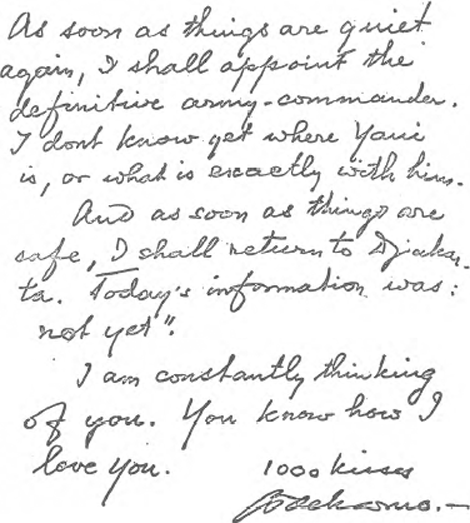 As soon as things are quiet
again, I shall appoint the
definitive army-commander.
I dont know yet where Yani
is, or what is exactly with him.
And as soon as things are
safe, I shall return to Djakar-
ta. Today's information was:
not yet".
I am constantly thinking
of you. You know how I
love you.
1000 kisses
Soekarno.—